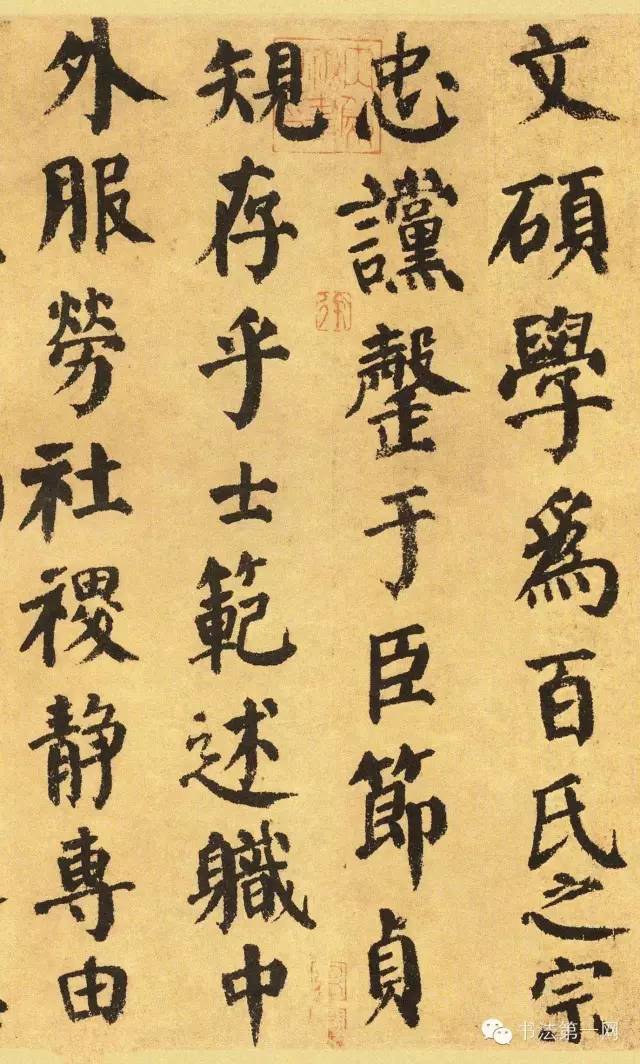 文碩學為百氏之宗
忠讜罄于臣節貞
規存乎士範述職中
外服勞社稷静專由
书法第一网